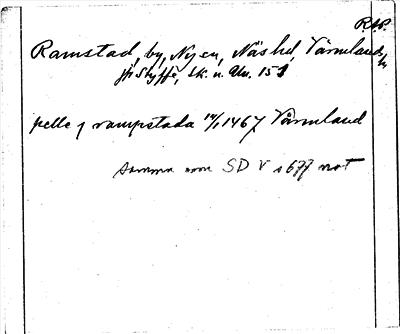 R.A.P.
Ramstad, by, Nysn, Näshd, Värmland
jfr Styffe, Sk. u. Un. 151
pelle j rampstada 14/1 1467 Värmland
samma som SD V s 677 not